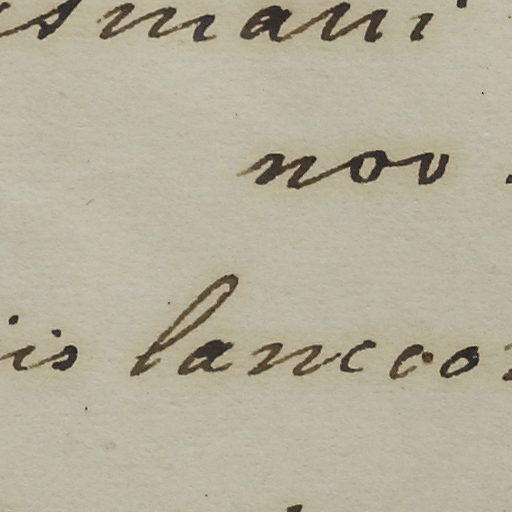 smani
nov.
is lanceo